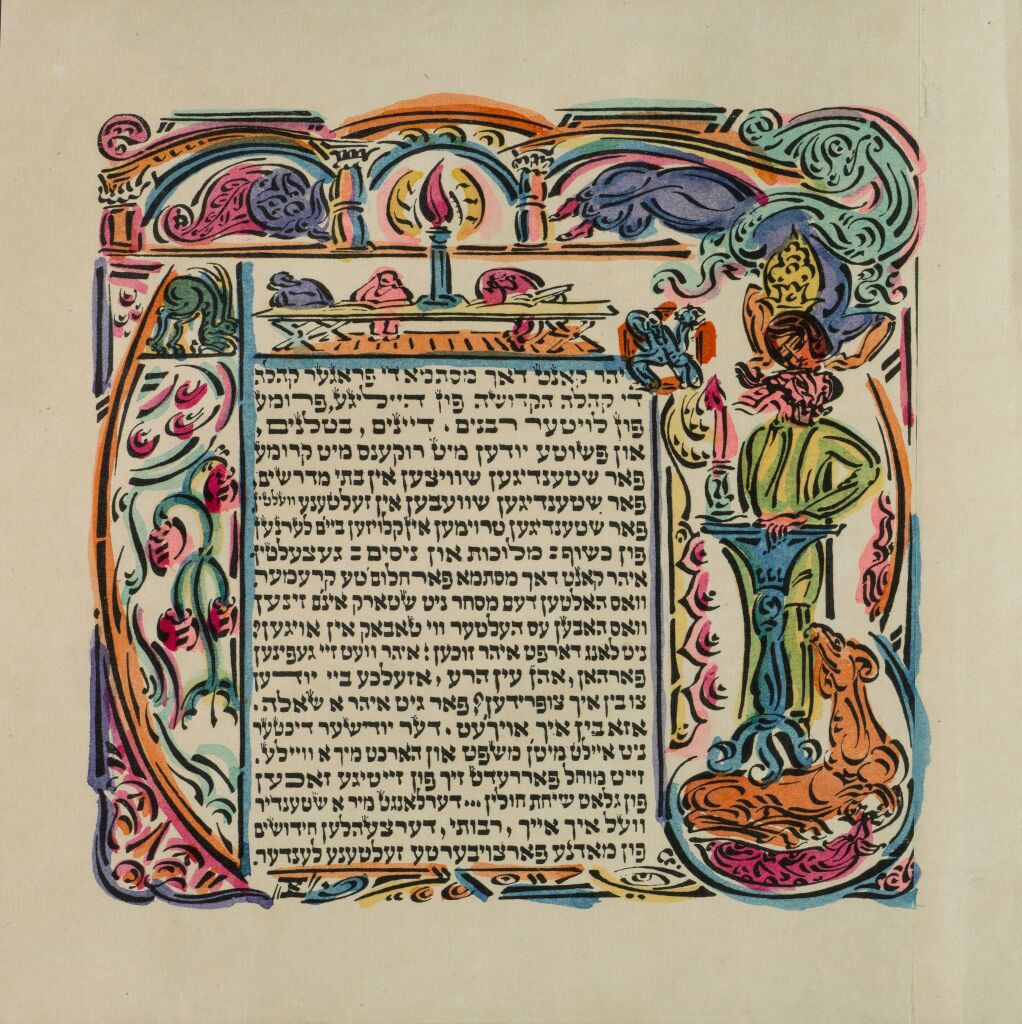 איהר קאנט דאך מסתמא די פראגער קהלה
די קהלה הקדושה פון הייליגע, פרומע
פון לויטער רבנים, דיינים, בטלנים,
און פשוטע יודען מיט רוקענס מיט קרומע
פאר שטענדיגען שוויצען אין בתי מדרשים,
פאר שטענדיגען שוועבען אין זעלטענע וועלטין
פאר שטענדיגען טרוימען אין קלויזען ביים לערנען
פון כשוף=מלוכות און ניסים=געצעלטין
איהר קאנט דאך מסתמא פאר חלום'טע קרעמער
וואס האלטען דעם מסחר ניט שטארק אינם זינען
וואס האבען עס העלטער ווי טאבאק אין אויגען
ניט לאנג דארפט איהר זוכען! איהר וועט זיי געפינען
פארהאן, אהן עין הרע, אזעלכע ביי יודען
צו בין איך צופרידען? פאר גיט איהר א שאלה.
אזא בין איך אוירעט. דער יודישער דיכטער
ניט איילט מיטן משפט און הארכט מיך א וויילע
זייט מוחל פאררעדט זיך פון זייטיגע זאכען
פון גלאט שיחת חולין... דערלאנגט מיר א שטענדיר
וועל איך אייך, רבותי, דערצעהלען חידושים
פון מאדנע פארצויבערטע זעלטענע לענדער.